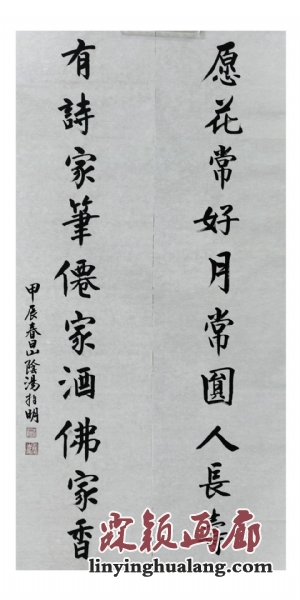 愿花常好月常圓人長壽
有詩家筆僊家酒佛家香
甲辰春山陰湯指明
霖颖画廊
www.linyinghualang.com